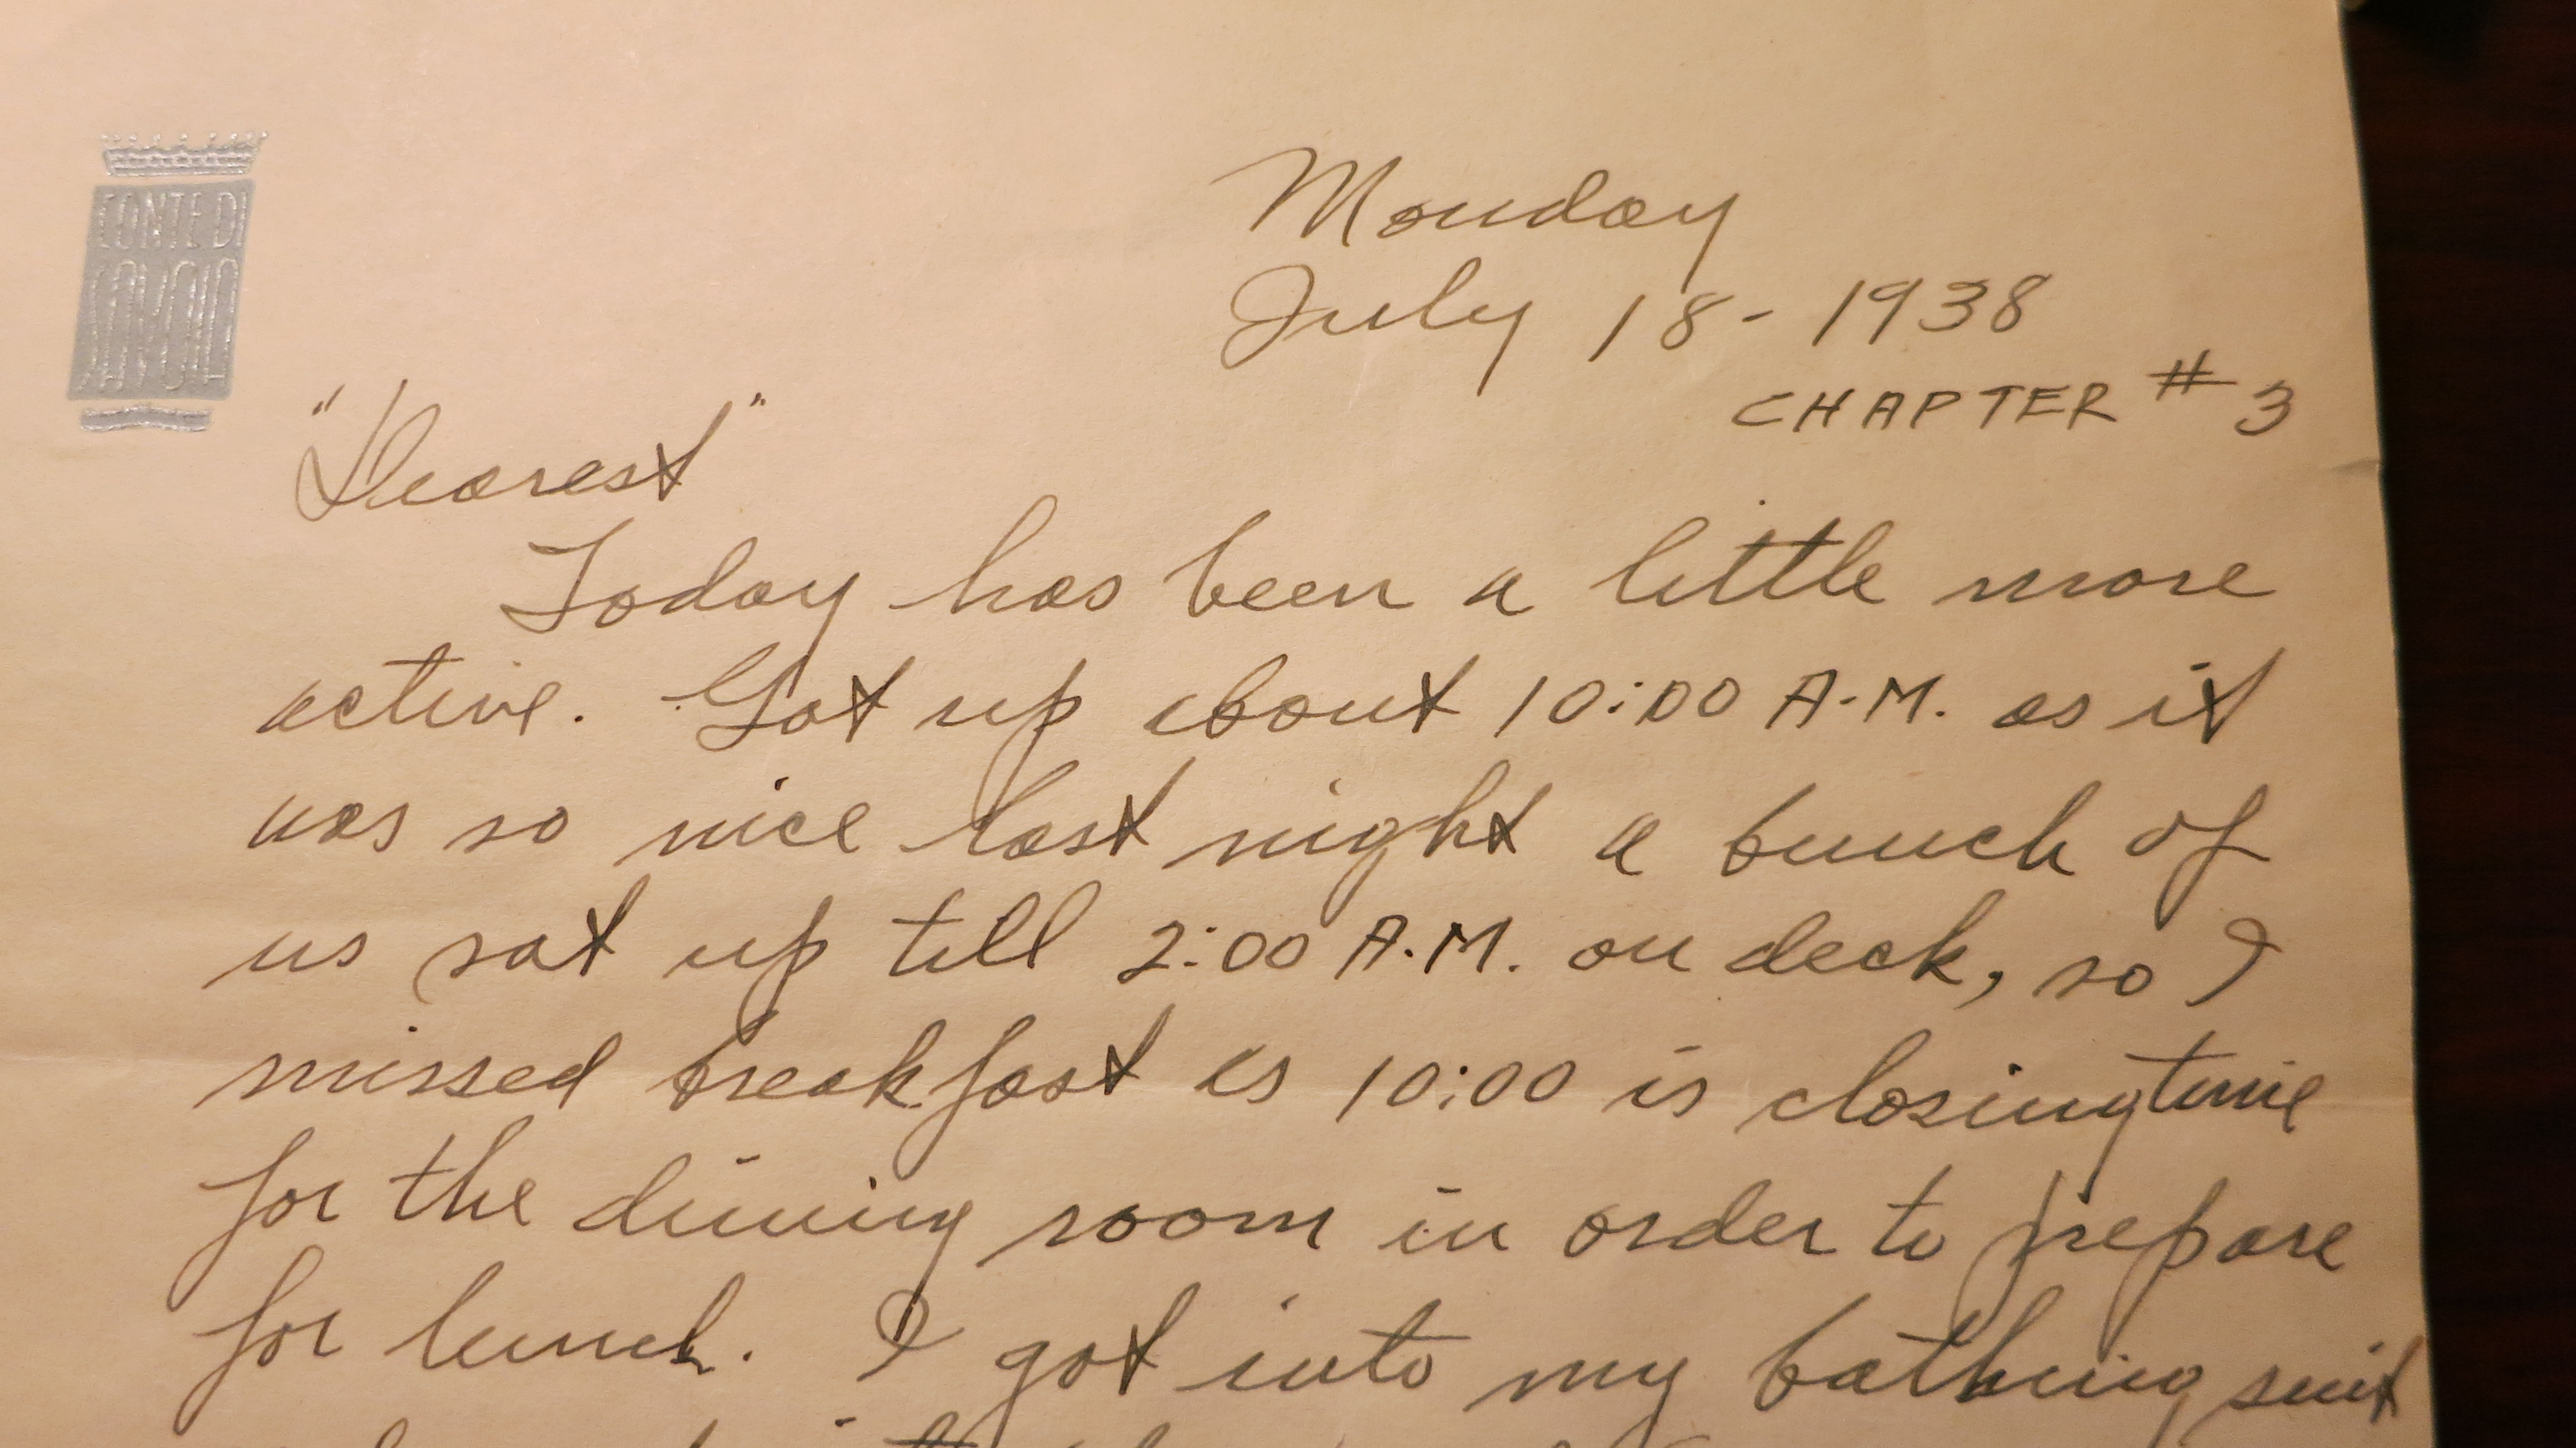 CONTE DI
SAVOIA
Monday
July 18 - 1938
CHAPTER # 3
"Dearest"
Today has been a little more
active. Got up about 10:00 A.M. as it
was so nice last night a bunch of
us sat up till 2:00 A.M. on deck, so I
missed breakfast as 10:00 is closing time
for the dining room in order to prepare
for lunch. I got into my bathing suit